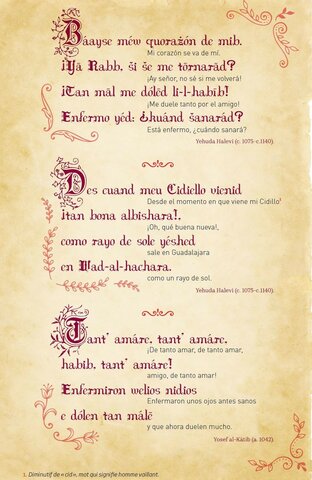 Báayse méw quorażón de mib.
Mi corazón se va de mí.
¡Yā Rabb, ši še me tōrnarād?
¡Ay señor, no sé si me volverá!
¡Tan māl me dólēd li-l-habīb!
¡Me duele tanto por el amigo!
Enfermo yéd: ¿kuánd šanarád?
Está enfermo, ¿cuándo sanará?
Yehuda Halevi (c. 1075-c.1140).
Des cuand meu Cidiello vienid
Desde el momento en que viene mi Cidillo¹
¡tan bona albishara!,
¡Oh, qué buena nueva!,
como rayo de sole yéshed
sale en Guadalajara
en Wad-al-hachara.
como un rayo de sol.
Yehuda Halevi (c. 1075-c.1140).
Tant' amáre, tant' amáre,
¡De tanto amar, de tanto amar,
habib, tant' amáre!
amigo, de tanto amar!
Enfermiron welios nidios
Enfermaron unos ojos antes sanos
e dólen tan málē
y que ahora duelen mucho.
Yosef al-Kātib (a. 1042).
1. Diminutif de «cid», mot qui signifie homme vaillant.